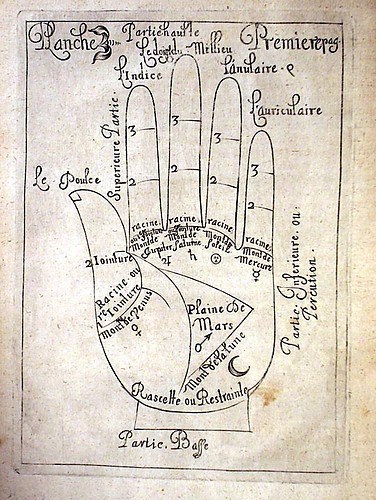 Planche
Premiere pag.
Partie haulte
Le doigt du Millieu
L'Indice
L'anulaire.
L'auriculaire
Superieure Partie.
Le Poulce
3
3
3
3
2
2
2
2
racine.
racine.
racine.
racine.
Mont de
Jupiter ♃
Mont de
Saturne ♄
Mont du
Soleil ☉
Mont de
Mercure ☿
2 Iointure
Racine ou
1re Iointure
Mont de Venus
♀
Plaine de
Mars
♂
Mont de la Lune
☾
Partie Inferieure. ou.
Percution.
Rascette ou Restrainte
Partie. Basse